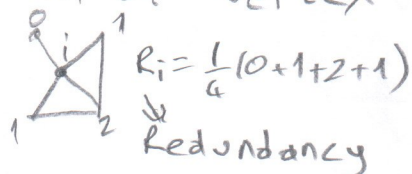 0
i
1
1
2
R_i = 1/4 (0+1+2+1)
Redundancy